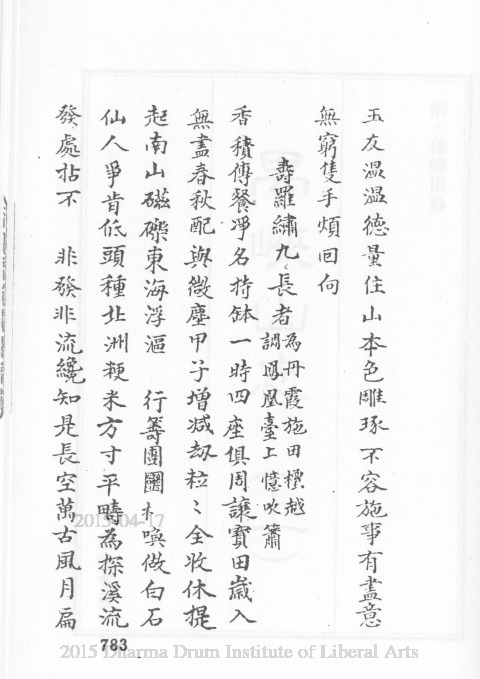 玉友温温德量住山本色雕琢不容施事有盡意
無窮隻手煩回向
壽羅繡九〻長者為丹霞施田檀越
調鳳凰臺上憶吹簫
香積傳餐凈名持鉢一時四座俱周讓寶田歲入
無盡春秋配與微塵甲子增減劫粒〻全收休提
起南山磁礫東海浮漚 行籌團圞
木喚做白石
仙人爭肯低頭種北洲粳米方寸平疇為探溪流
發處拈不 非發非流纔知是長空萬古風月扁
783
2015-04-17
2015 Dharma Drum Institute of Liberal Arts